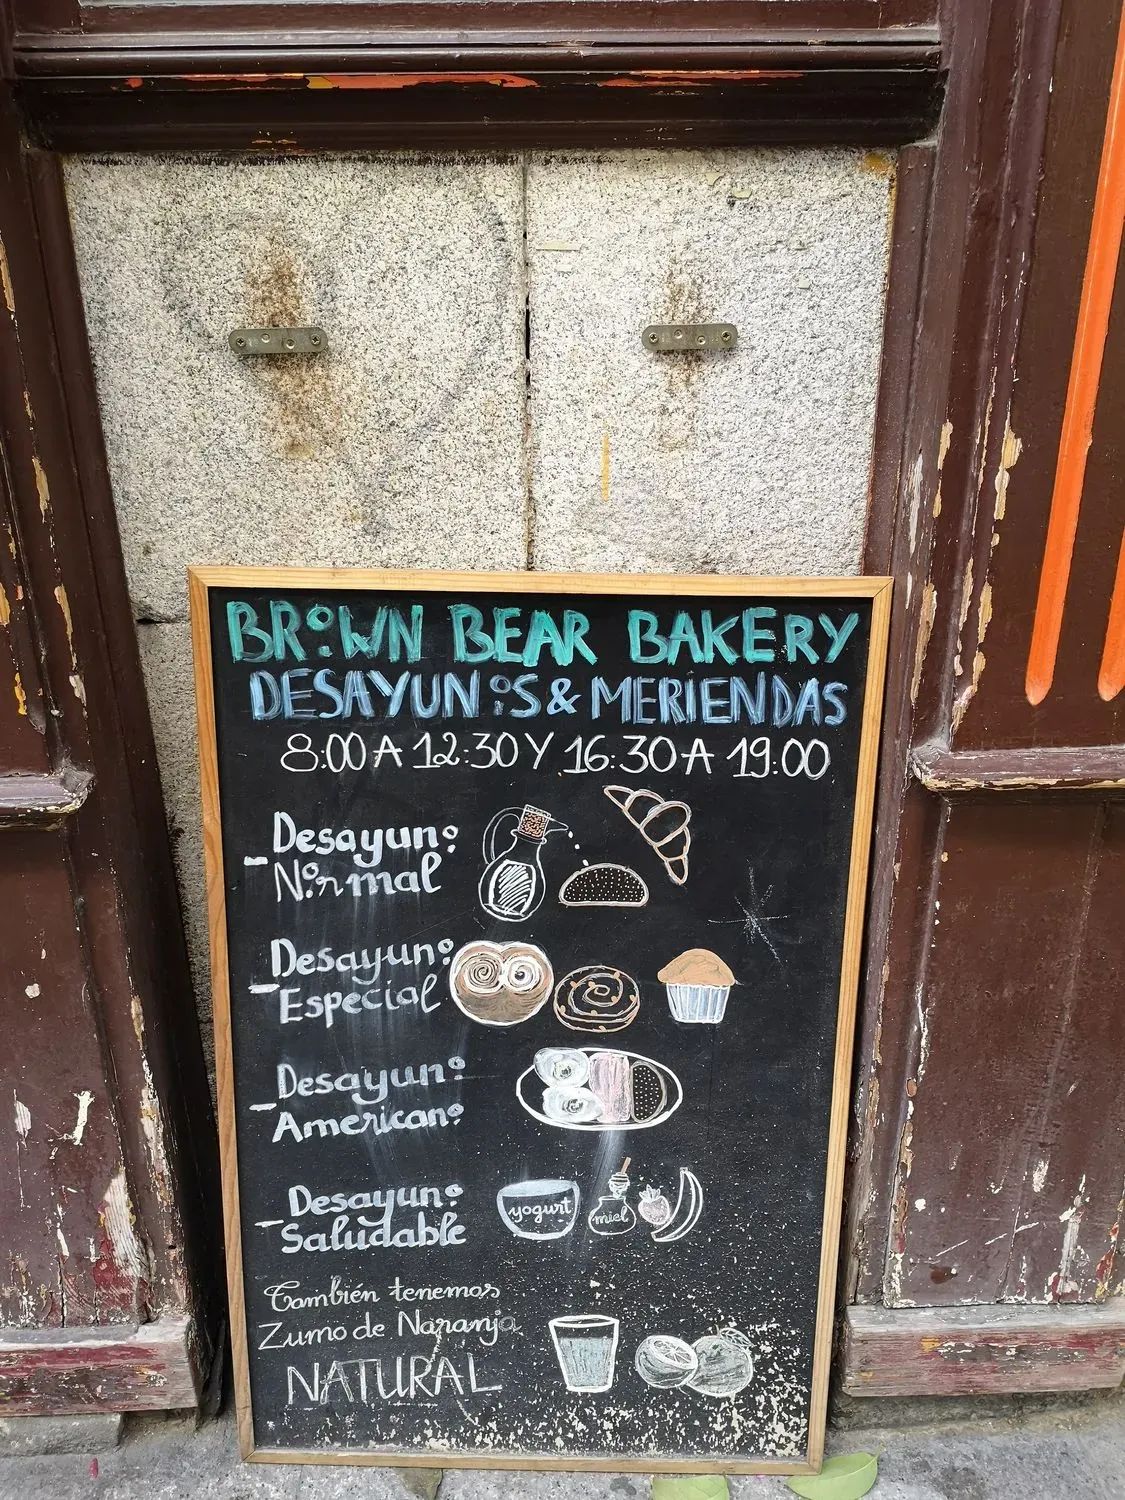 BROWN BEAR BAKERY
DESAYUNOS & MERIENDAS
8:00 A 12:30 Y 16:30 A 19:00
Desayuno
- Normal
Desayuno
- Especial
Desayuno
- Americano
Desayuno
- Saludable
yogurt
miel
También tenemos
Zumo de Naranja
NATURAL